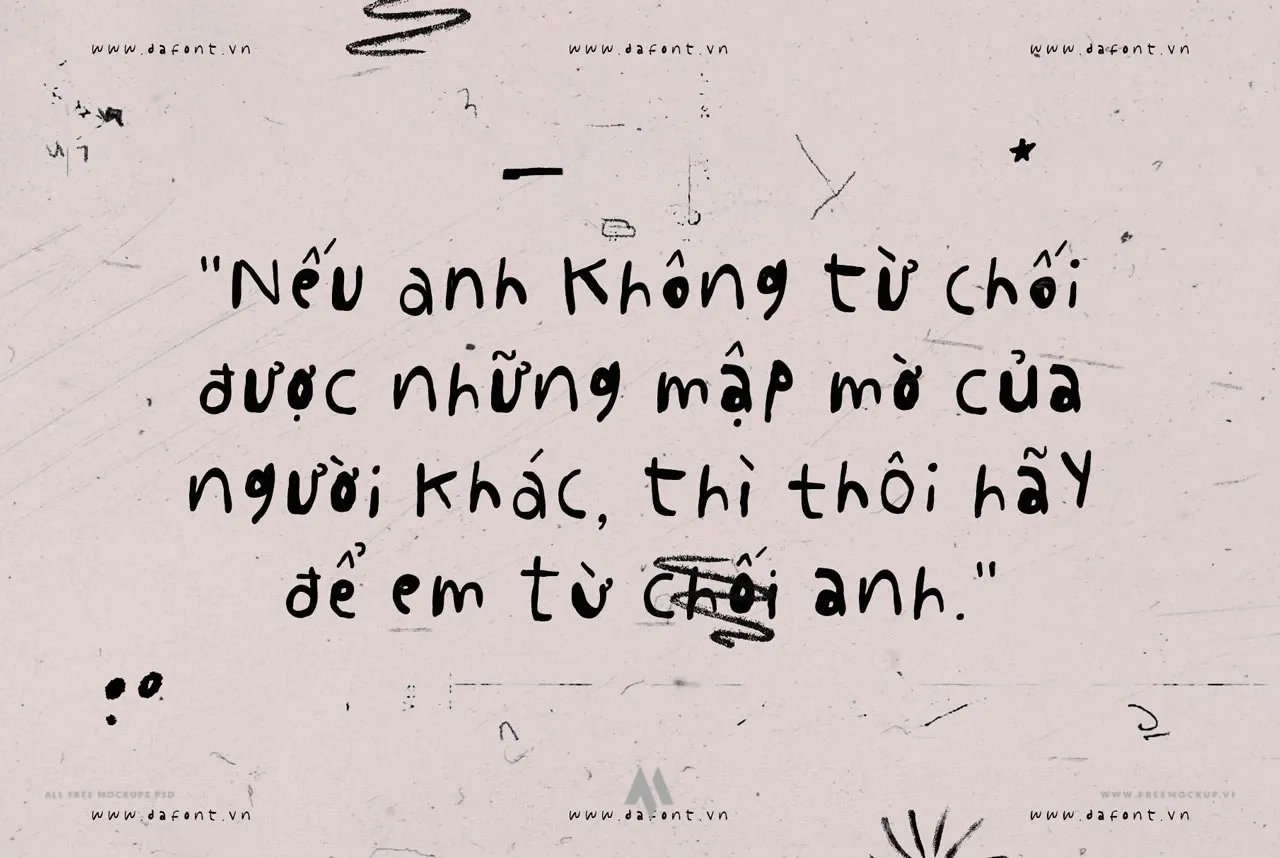 www.dafont.vn www.dafont.vn www.dafont.vn
"Nếu anh không từ chối
được những mập mờ của
người khác, thì thôi hãy
để em từ chối anh."
ALL FREE MOCKUPS PSD WWW.FREEMOCKUP.VN
www.dafont.vn www.dafont.vn www.dafont.vn